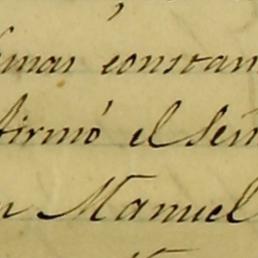 constan
firmó el Señ
n Manuel